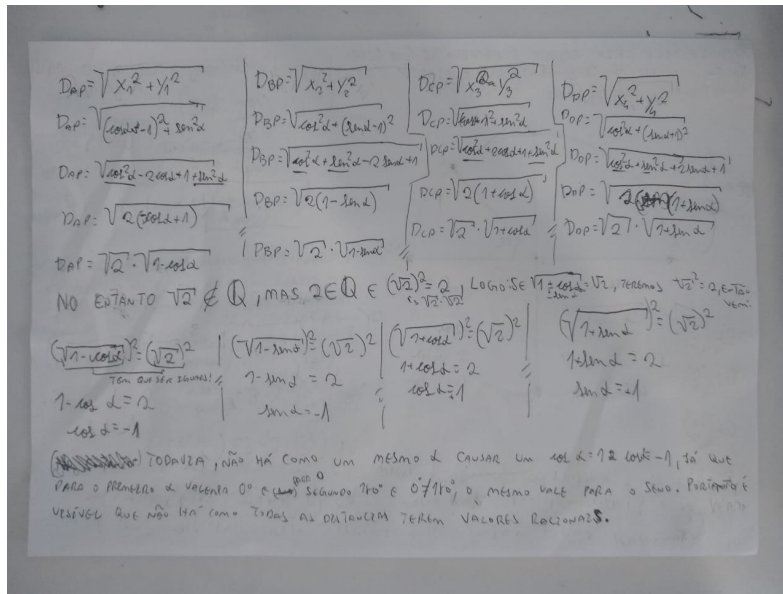 DAP = √(X₁² + Y₁²)
DAP = √((cosα-1)² + sen²α)
DAP = √(cos²α - 2cosα + 1 + sen²α)
DAP = √(2(-cosα + 1))
DAP = √2 · √(1-cosα)
DBP = √(X₂² + Y₂²)
DBP = √(cos²α + (senα-1)²)
DBP = √(cos²α + sen²α - 2 senα + 1)
DBP = √(2(1 - senα))
DBP = √2 · √(1-senα)
DCP = √(X₃² + Y₃²)
DCP = √((cosα+1)² + sen²α)
DCP = √(cos²α + 2cosα + 1 + sen²α)
DCP = √(2(1 + cosα))
DCP = √2 · √(1+cosα)
DDP = √(X₄² + Y₄²)
DDP = √(cos²α + (senα+1)²)
DDP = √(cos²α + sen²α + 2senα + 1)
DDP = √(2(1+senα))
DDP = √2 · √(1+senα)
NO ENTANTO √2 ∉ ℚ, MAS 2 ∈ ℚ E (√2)² = 2, LOGO SE √(1±cosα) = √2, TEREMOS √2² = 2, ENTÃO
√2·√2
sen
(√(1-cosα))² = (√2)²
TEM QUE SER IGUAIS!
1 - cos α = 2
cos α = -1
(√(1-senα))² = (√2)²
1 - sen α = 2
sen α = -1
(√(1+cosα))² = (√2)²
1 + cos α = 2
cos α = 1
(√(1+senα))² = (√2)²
1 + sen α = 2
sen α = 1
TODAVIA, NÃO HÁ COMO UM MESMO α CAUSAR UM cos α = 1 e cos = -1, JÁ QUE
PARA O PRIMEIRO α VALERIA 0° E para o SEGUNDO 180° E 0° ≠ 180°, O MESMO VALE PARA O SENO. PORTANTO, É
VISÍVEL QUE NÃO HÁ COMO TODAS AS DISTANCIAS TEREM VALORES RACIONAIS.